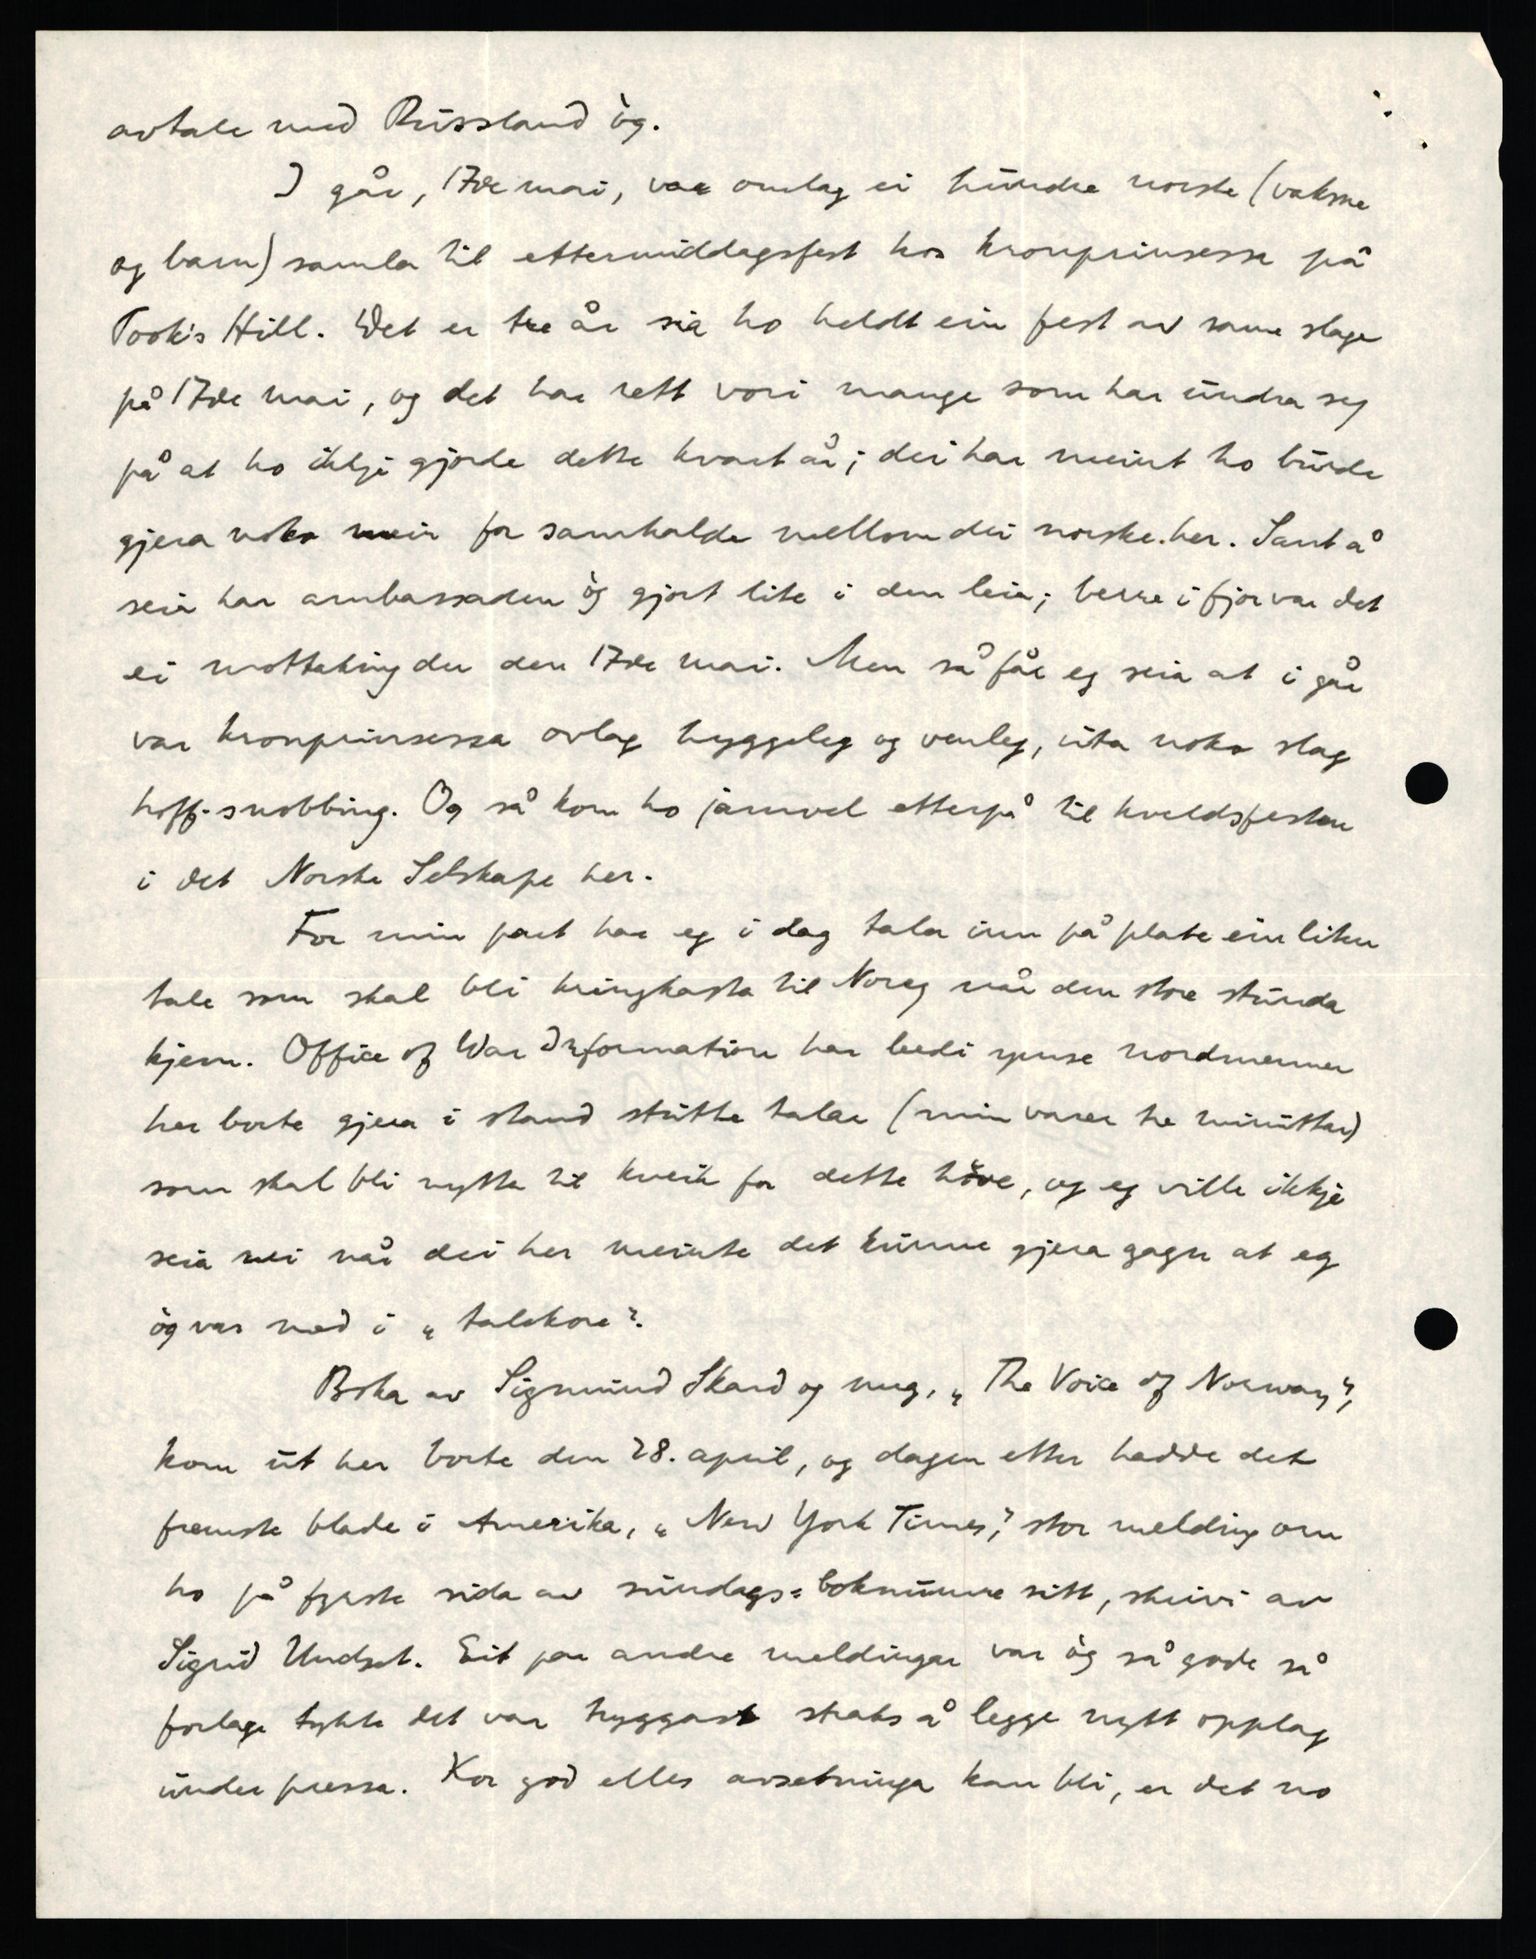 avtale med Russland òg.
I går, 17de mai, var omlag ei hundre norske (vaksne
og barn) samla til ettermiddagsfest hos kronprinsessa på
Pook's Hill. Det er tre år sia ho heldt ein fest av same slage
på 17de mai, og det har rett vori mange som har undra seg
på at ho ikkje gjorde dette kvart år; dei har meint ho burde
gjera noko meir for samhalde mellom dei norske her. Sant å
seia har ambassaden òg gjort lite i den leia; berre i fjor var det
ei mottaking der den 17de mai. Men så får eg seia at i går
var kronprinsessa ovlag hyggeleg og venleg, uta noko slag
hoff-snobbing. Og så kom ho jamvel etterpå til kveldsfesten
i det Norske Selskape her.
For min part har eg i dag tala inn på plate ein liten
tale som skal bli kringkasta til Noreg når den store stunda
kjem. Office of War Information har bedi ymse nordmenner
her borte gjera i stand stutte talar (min varer tre minuttar)
som skal bli nytta til kveik for dette høve, og eg ville ikkje
seia nei når dei her meinte det kunne gjera gagn at eg
òg var med i „talekore“.
Boka av Sigmund Skard og meg, „The Voice of Norway“,
kom ut her borte den 28. april, og dagen etter hadde det
fremste blade i Amerika, „New York Times“, stor melding om
ho på fyrste sida av sundags-boknumme sitt, skrivi av
Sigrid Undset. Eit par andre meldingar var òg så gode så
forlage tykte det var tryggast straks å legge nytt opplag
under pressa. Kor god elles avsetninga kan bli, er det no